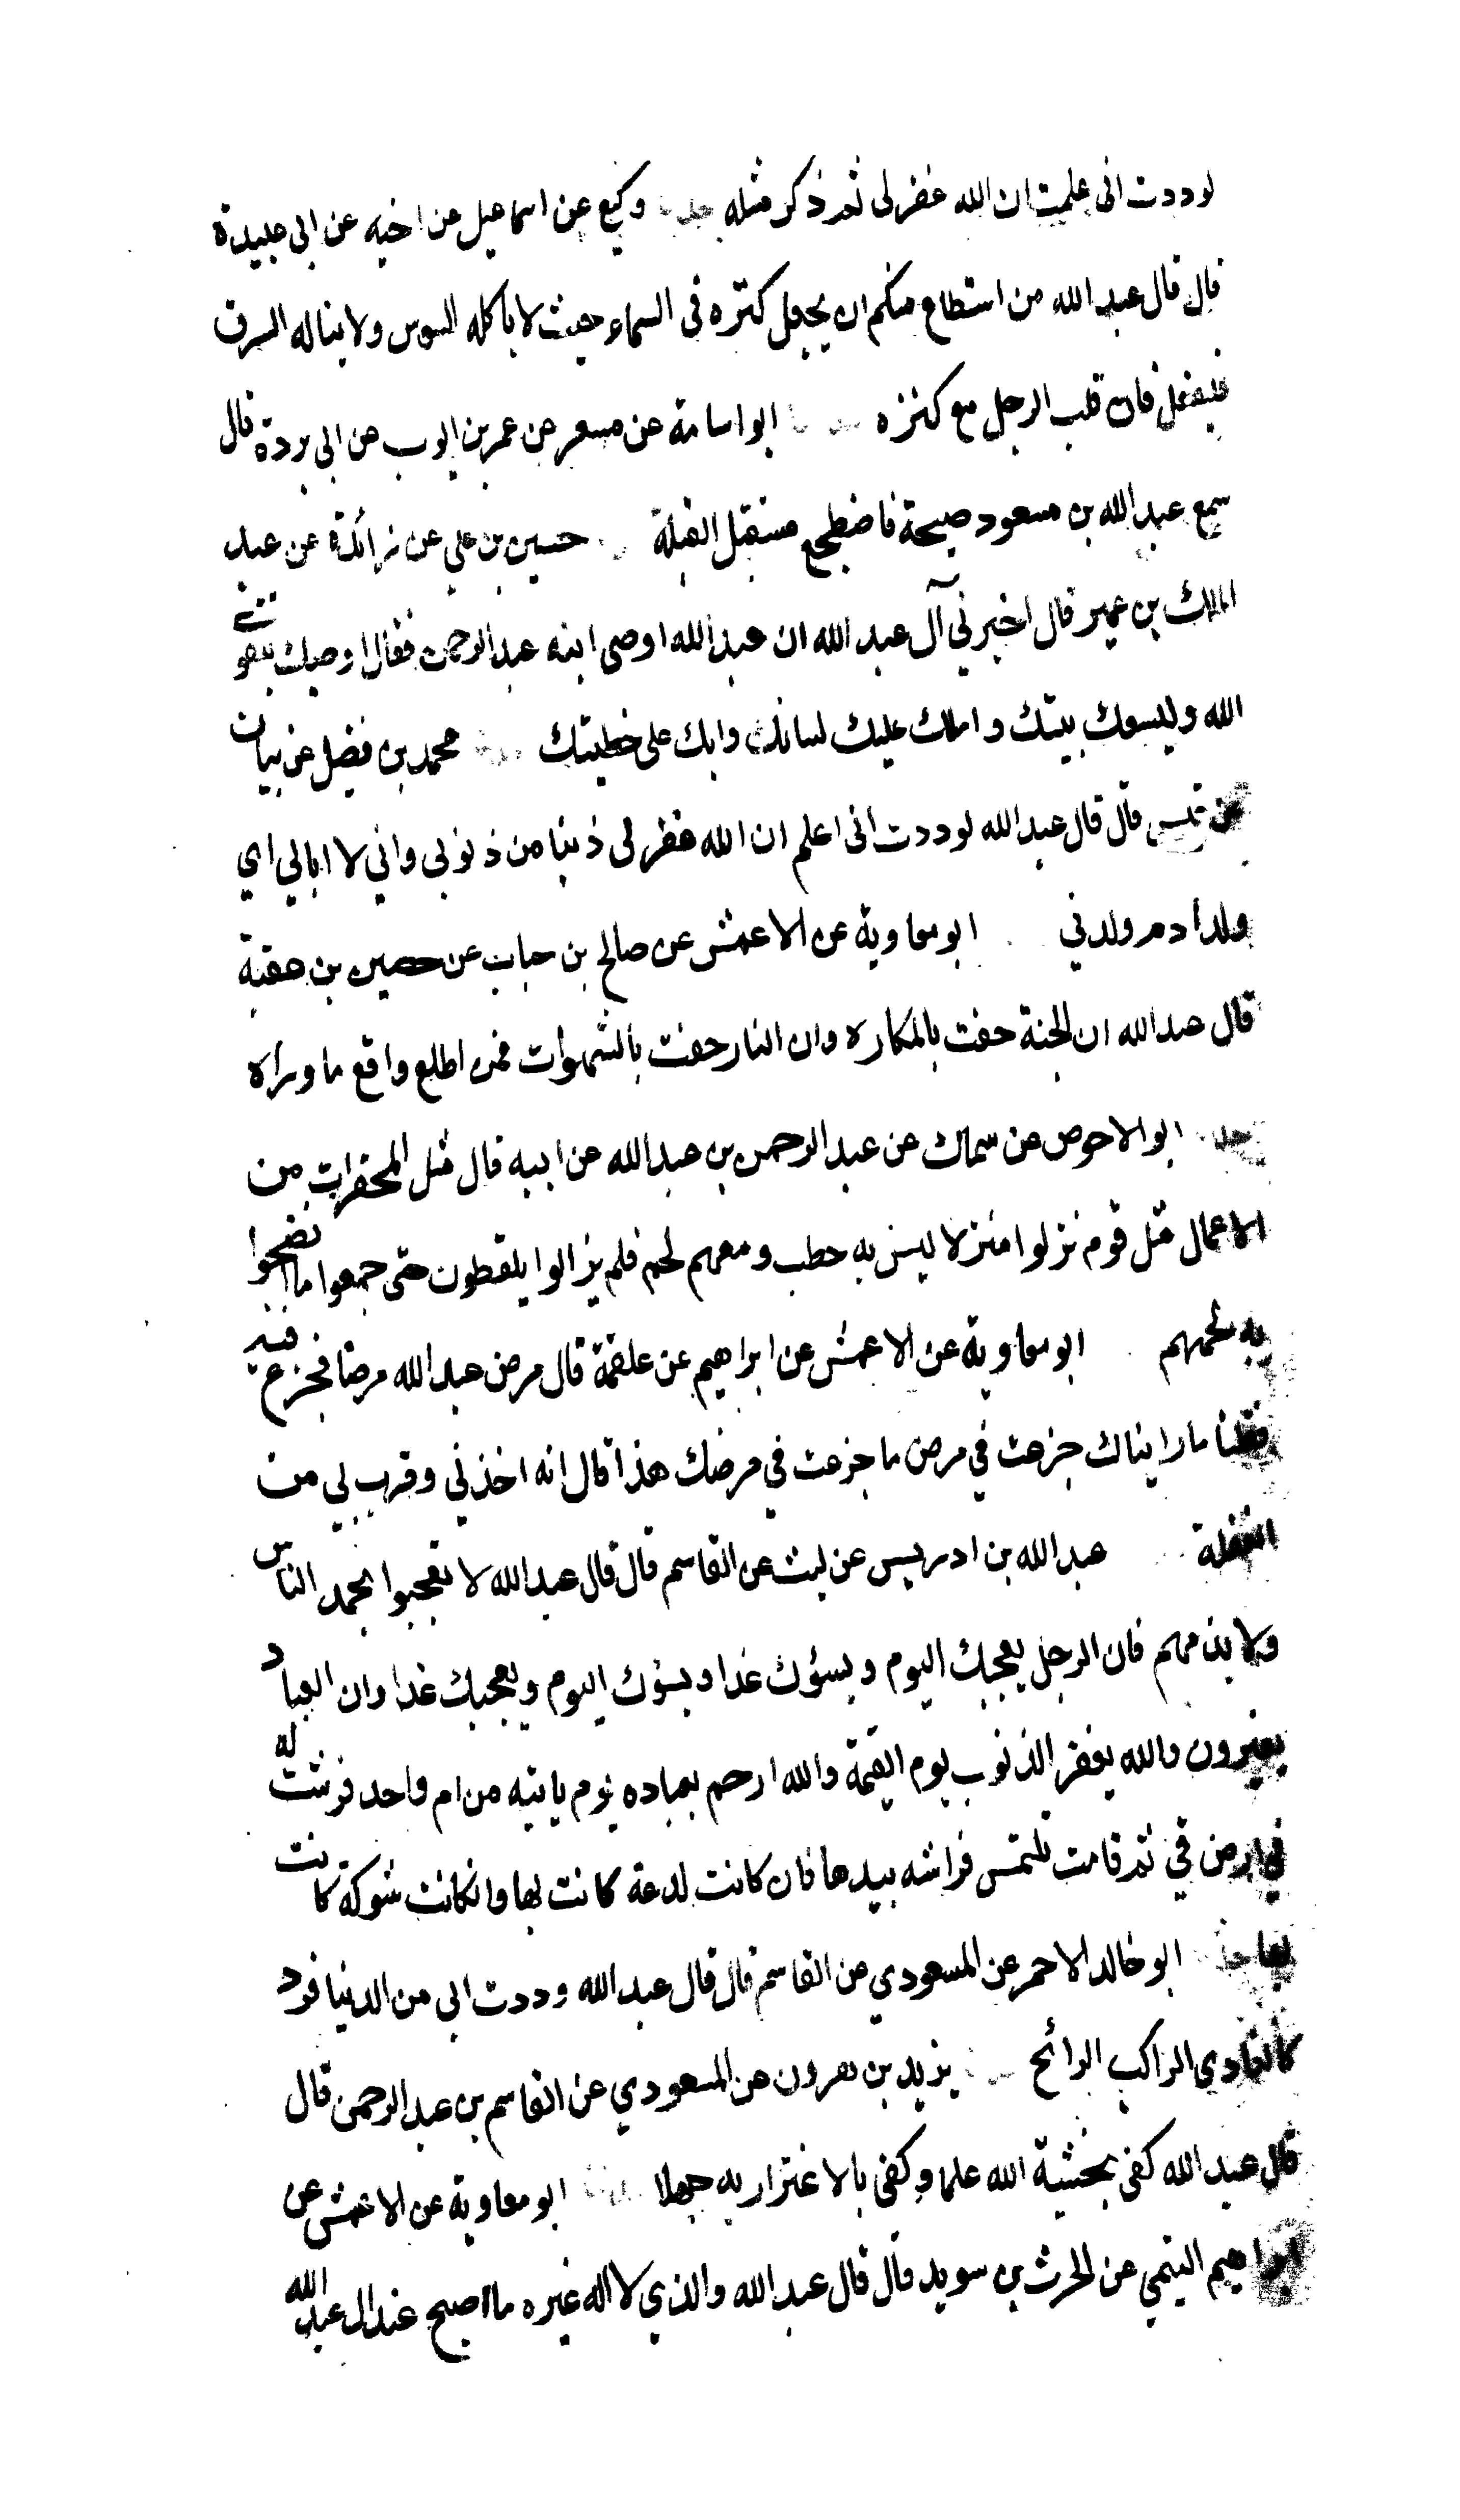 لوددت انى علمت ان الله غفر لى ثم ذكر مثله حدثنا وكيع عن اسماعيل عن اخيه عن ابى عبيدة
قال قال عبد الله من استطاع منكم ان يجعل كنزه فى السماء حيث لا ياكله السوس ولا يناله السرق
فليفعل فان قلب الرجل مع كنزه ابو اسامة عن مسعر عن عمر بن ايوب عن ابى بردة قال
سمع عبد الله بن مسعود صيحة فاضطجع مستقبل القبلة حسين بن على عن زائدة عن عبد
الملك بن عمير قال اخبرني آل عبد الله ان عبد الله اوصى ابنه عبد الرحمن فقال اوصيك بتقوى
الله وليسعك بيتك واملك عليك لسانك وابك على خطيئتك محمد بن فضيل عن بيان
عن قيس قال قال عبد الله لوددت انى اعلم ان الله غفر لى ذنبا من ذنوبى واني لا ابالي اي
ولد ادم ولدني ابو معاوية عن الاعمش عن صالح بن حباب عن حصين بن عقبة
قال عبد الله ان الجنة حفت بالمكاره وان النار حفت بالشهوات فمن اطلع واقع ما وراه
حدثنا ابو الاحوص عن سماك عن عبد الرحمن بن عبد الله عن ابيه قال مثل المحقرات من
الاعمال مثل قوم نزلوا منزلا ليس به حطب ومعهم لحم فلم يزالوا يلقطون حتى جمعوا ما انضجوا
به لحمهم ابو معاوية عن الاعمش عن ابراهيم عن علقمة قال مرض عبد الله مرضا فجزع فيه
فقلنا ما رايناك جزعت في مرض ما جزعت في مرضك هذا قال انه اخذني وقرب بي من
الغفلة عبد الله بن ادريس عن ليث عن القاسم قال قال عبد الله لا تعجبوا بحمد الناس
ولا بذمهم فان الرجل يعجبك اليوم ويسؤك غدا ويسؤك اليوم ويعجبك غدا وان العباد
يغيرون والله يغفر الذنوب يوم القيمة والله ارحم بعباده يوم ياتيه من ام واحد فرشت له
في ارض في ثم قامت تلتمس فراشه بيدها فان كانت لدغة كانت بها وان كانت شوكة كانت
بها حدثنا ابو خالد الاحمر عن المسعودي عن القاسم قال قال عبد الله وددت انى من الدنيا فرد
كالغادي الراكب الرائح يزيد بن هرون عن المسعودي عن القاسم بن عبد الرحمن قال
قال عبد الله كفى بخشية الله علما وكفى بالاغترار به جهلا ابو معاوية عن الاعمش عن
ابراهيم التيمي عن الحرث بن سويد قال قال عبد الله والذي لا اله غيره ما اصبح عند ال عبد الله